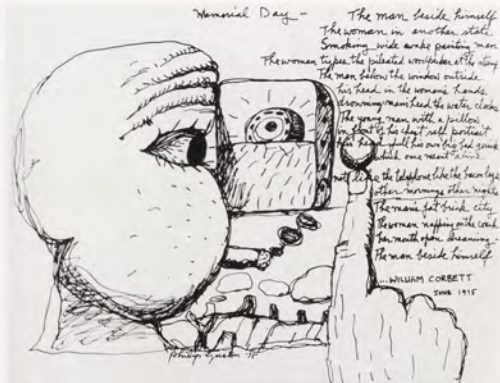 Memorial Day –
The man beside himself
The woman in another state
Smoking wide awake painting man
The woman types the pileated woodpecker at the
The man below the window outside
his head in the woman's hands
drowning man's head the water
The young man with a pillow
in front of his chest self portrait
his own big bad
which one meant
not like the telephone like the bacon
other mornings other nights
The man's fat brick city
The woman napping on the couch
her mouth open dreaming
The man beside himself
...WILLIAM CORBETT
JUNE 1975
Philip Guston '75